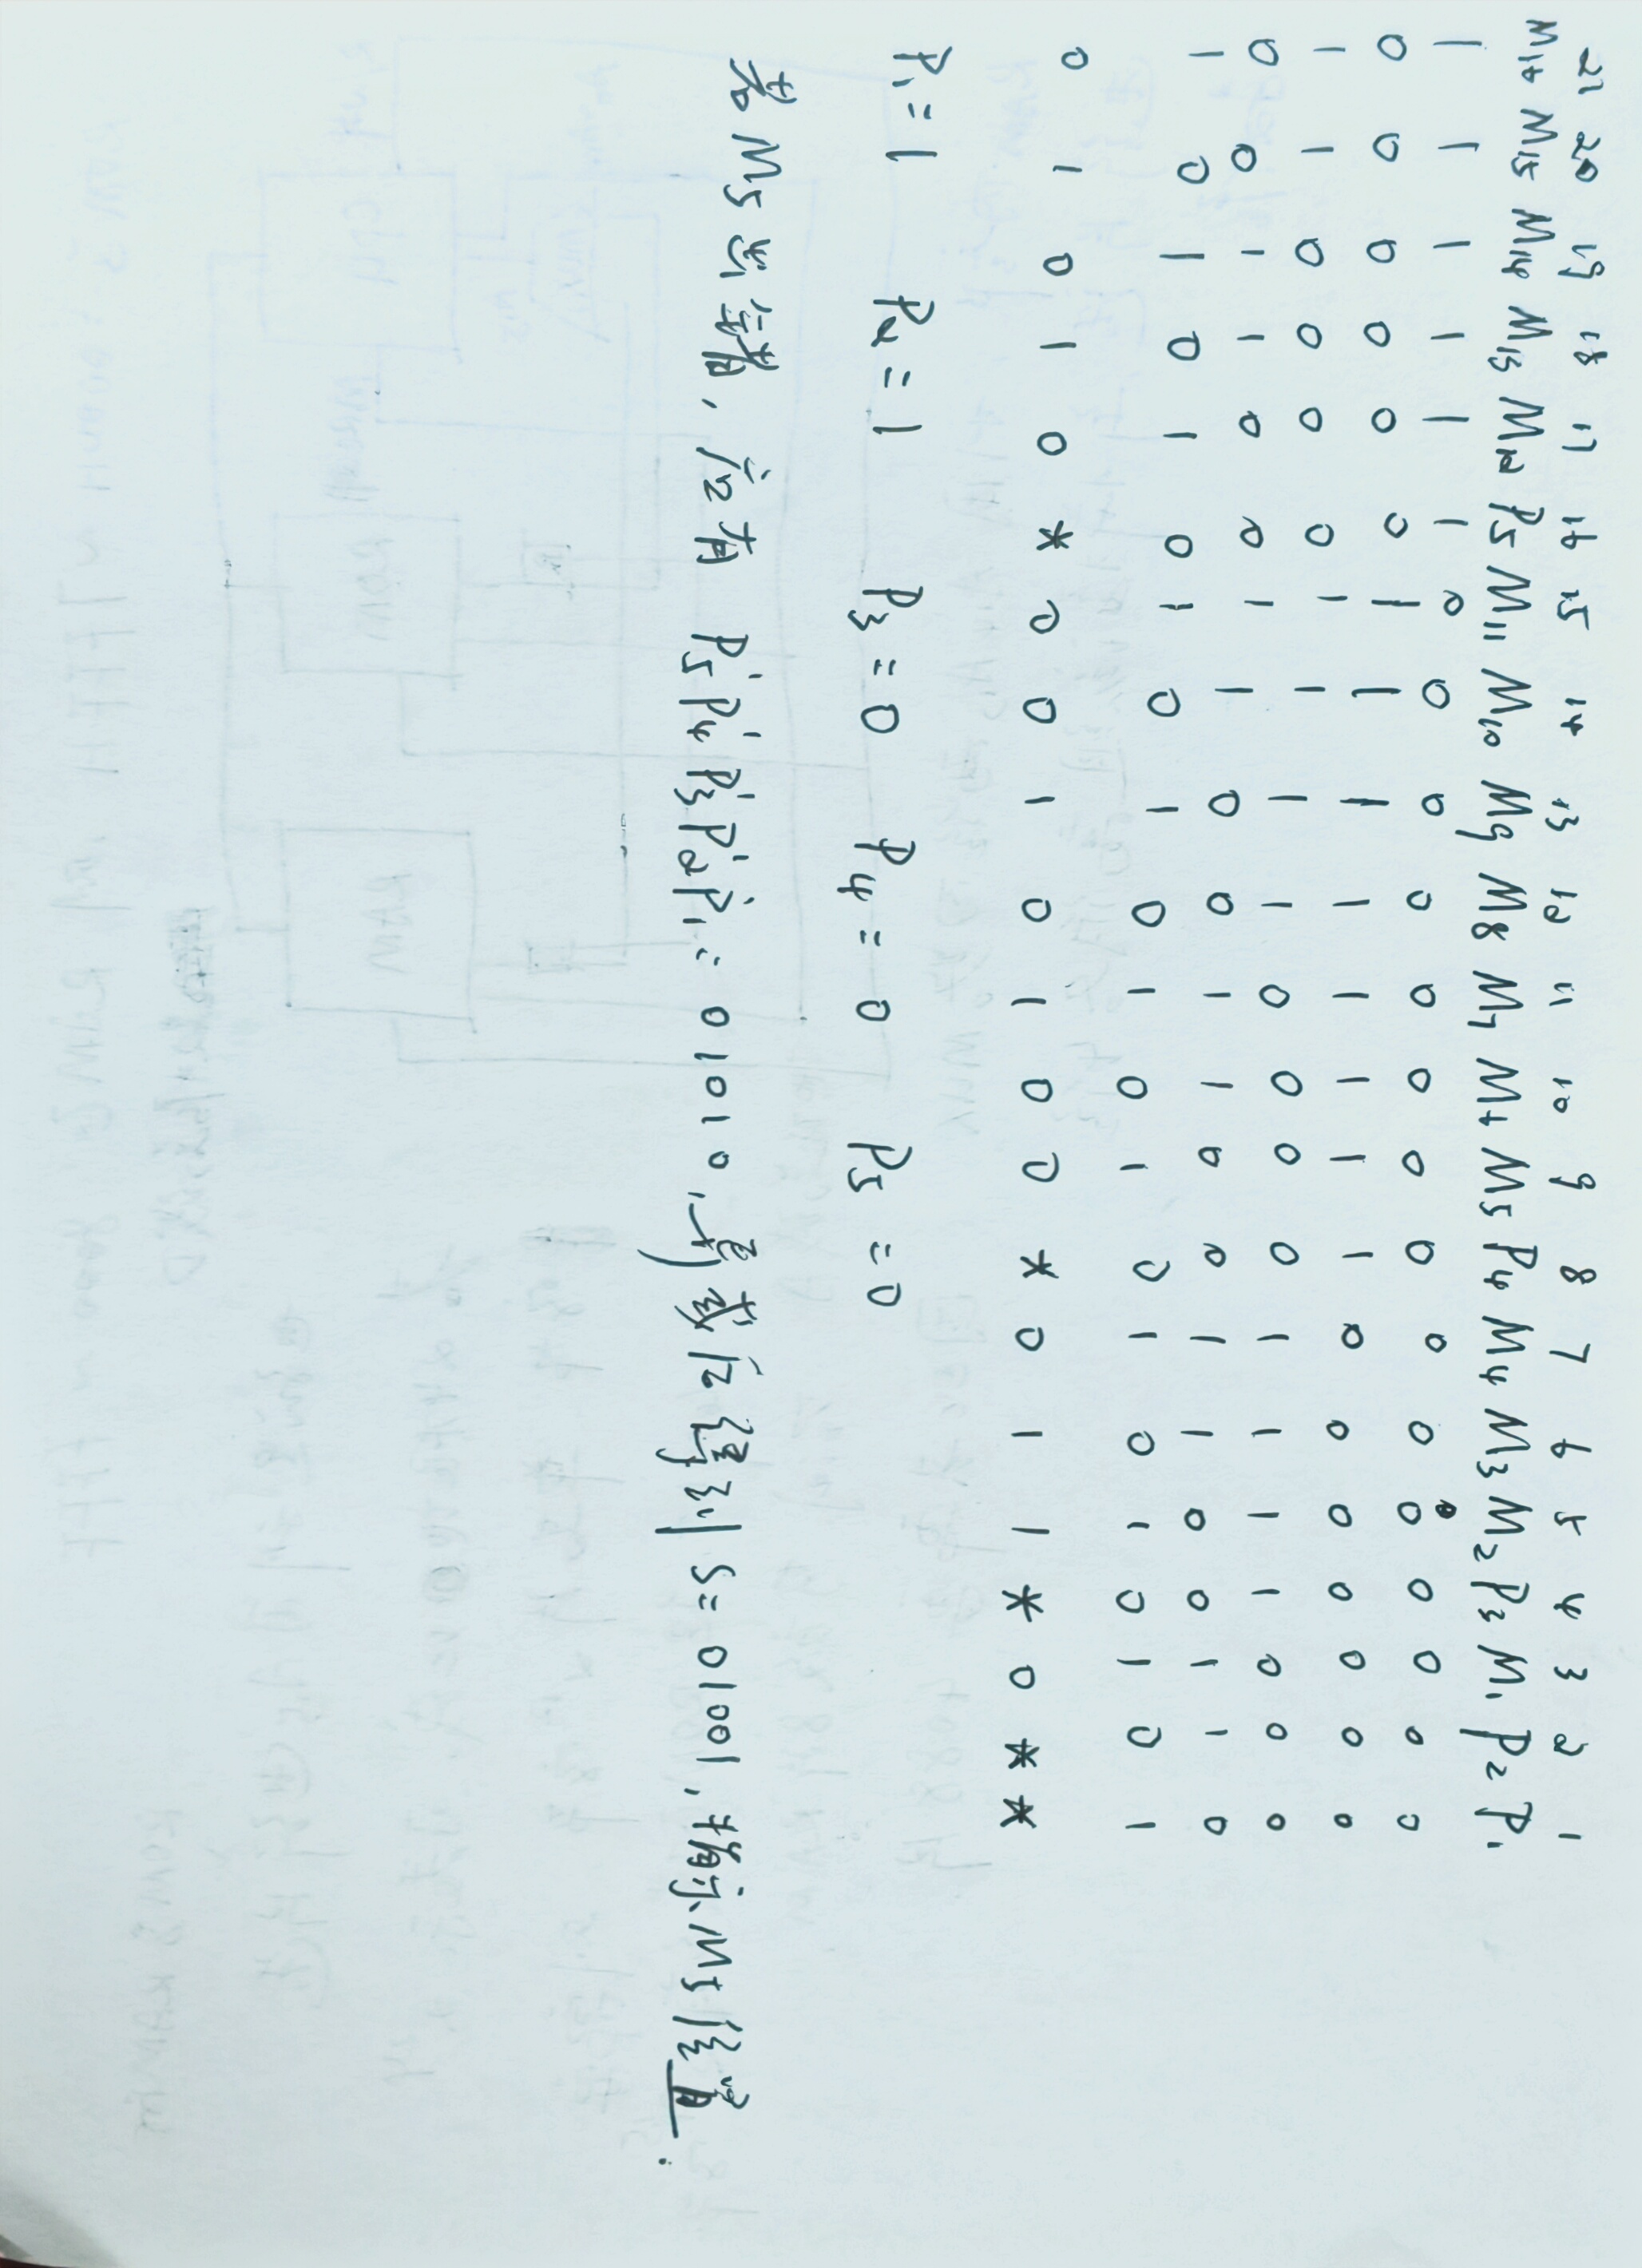 21 20 19 18 17 16 15 14 13 12 11 10 9 8 7 6 5 4 3 2 1
M16 M15 M14 M13 M12 P5 M11 M10 M9 M8 M7 M6 M5 P4 M4 M3 M2 P3 M1 P2 P1
1 1 1 1 1 1 0 0 0 0 0 0 0 0 0 0 0 0 0 0 0
0 0 0 0 0 0 1 1 1 1 1 1 1 1 0 0 0 0 0 0 0
1 1 0 0 0 0 1 1 1 1 0 0 0 0 1 1 1 1 0 0 0
0 0 1 1 0 0 1 1 0 0 1 1 0 0 1 1 0 0 1 1 0
1 0 1 0 1 0 1 0 1 0 1 0 1 0 1 0 1 0 1 0 1
0 1 0 1 0 * 0 0 1 0 1 0 0 * 0 1 1 * 0 * *
P1=1 P2=1 P3=0 P4=0 P5=0
若M5出错,应有 P5'P4'P3'P2'P1'=01010,异或后得到S=01001,指示M5位置.